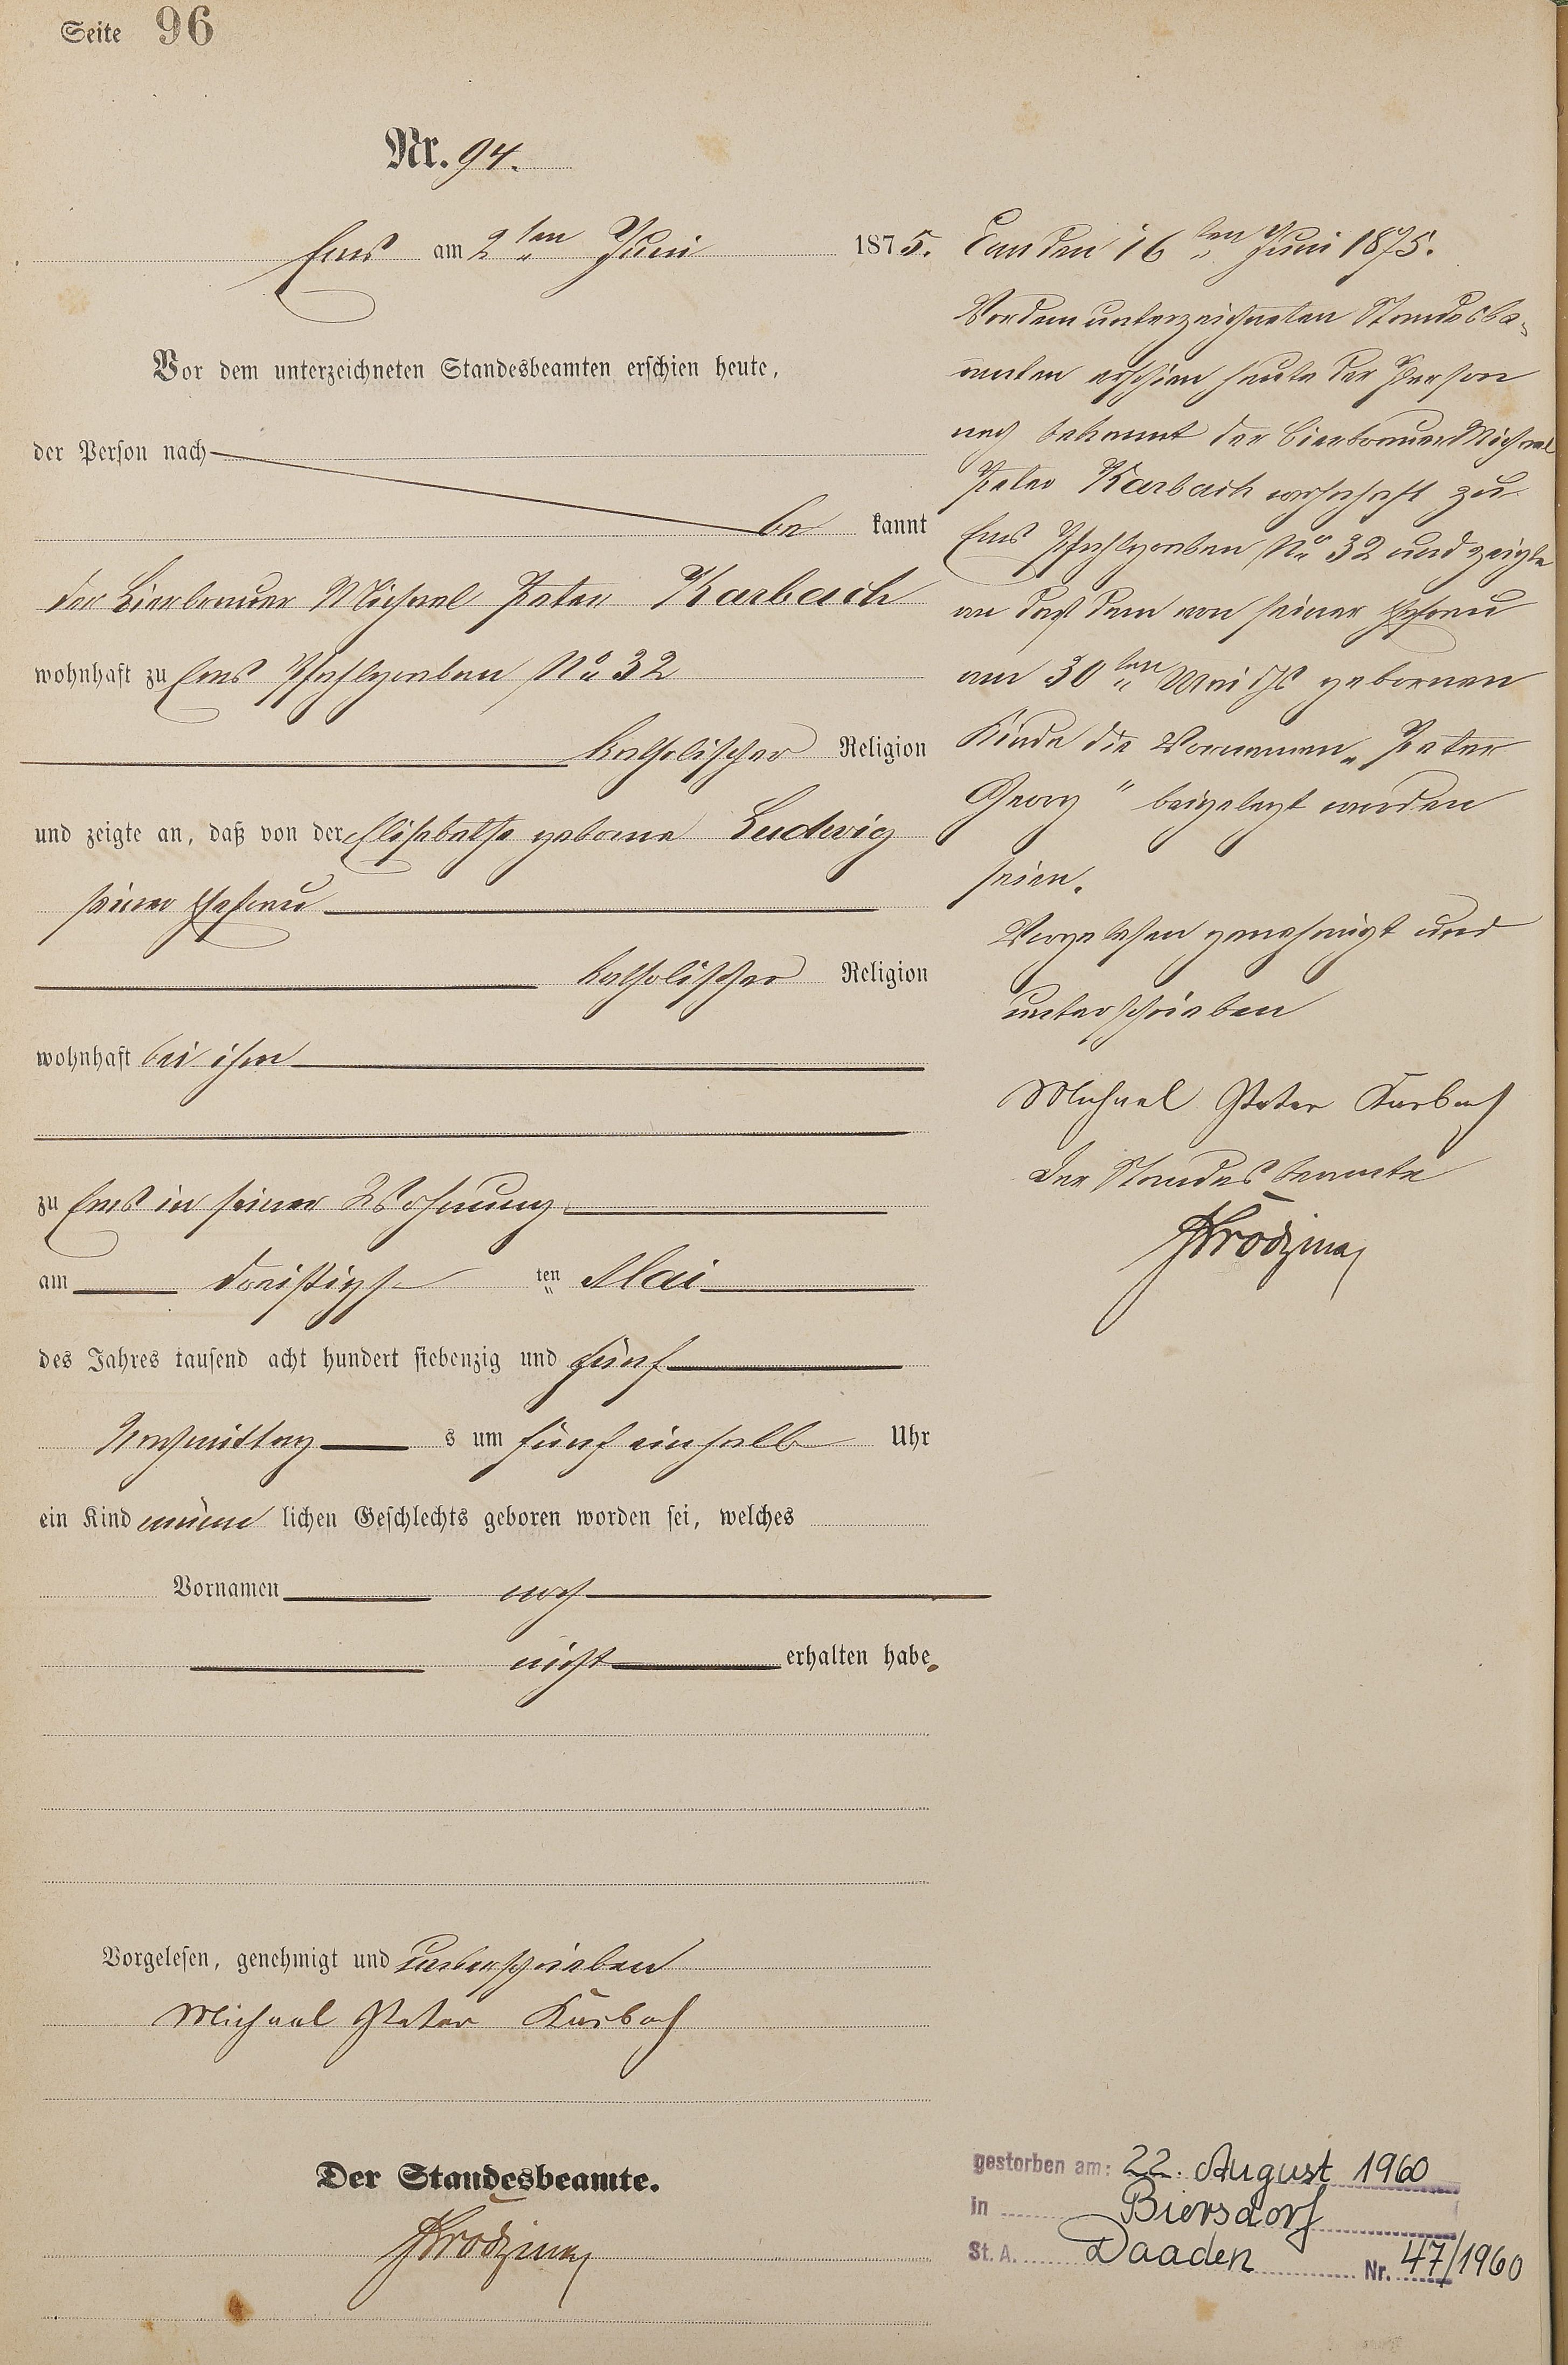 Seite 96
Nr. 94.
Ems am 2ten Juni 1875.
Vor dem unterzeichneten Standesbeamten erschien heute,
der Person nach
be kannt
der Bierbrauer Michael Peter Karbach
wohnhaft zu Ems Pfahlgraben No 32
katholischer Religion
und zeigte an, daß von der Elisabetha geborne Ludwig
seiner Ehefrau
katholischer Religion
wohnhaft bei ihm
zu Ems in seiner Wohnung
am dreißigs ten Mai
des Jahres tausend acht hundert siebenzig und fünf
Nachmittag s um fünf einhalb Uhr
ein Kind männ lichen Geschlechts geboren worden sei, welches
Vornamen noch
nicht erhalten habe.
Vorgelesen, genehmigt und unterschrieben
Michael Peter Karbach
Der Standesbeamte.
Ems den 16ten Juni 1875.
Vor dem unterzeichneten Standesbe-
amten erschien heute der Person
nach bekannt der Bierbrauer Michael
Peter Karbach wohnhaft zu
Ems Pfahlgraben No 32 und zeigte
an daß dem von seiner Ehefrau
am 30ten Mai d/J gebornen
Kinde die Vornamen „Peter
Georg" beigelegt worden
seien.
Vorgelesen genehmigt und
unterschrieben
Michael Peter Karbach
Der Standesbeamte
gestorben am: 22. August 1960
in Biersdorf
St. A. Daaden Nr. 47/1960